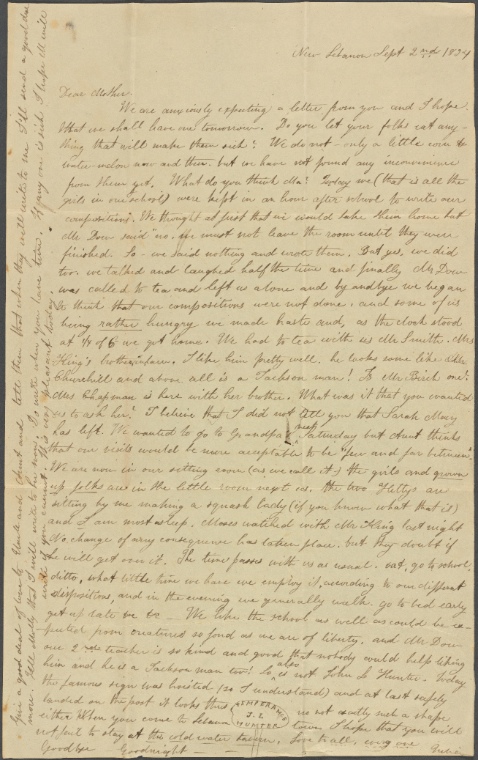 New Lebanon Sept 2nd 1834
Dear Mother
We are anxiously expecting a letter from you and I hope
that we shall have one tomorrow. Do you let your folks eat any-
thing that will make them sick? We do not - only a little corn &
water-melon now and then. but we have not found any inconvenience
from them yet. What do you think Ma? Today we (that is all the
girls in our school) were kept in an hour after school to write our
compositions. We thought at first that we would take them home but
Mr Dow said "no. we must not leave the room until they were
finished. So we said nothing and wrote them. But yes, we did
too. we talked and laughed half the time and finally Mr Dow
was called to tea and left us alone and by and bye we began
to think that our compositions were not done. and some of us
being rather hungry we made haste and, as the clock stood
at 1/4 of 6 we got home. We had to tea with us Mr Smith. Mrs
King's brother in law. I like him pretty well. he looks some like Mr
Churchill and above all is a Jackson man! Is Mr Birch one?
Mrs Chapman is here with her brother. What was it that you wanted
us to ask her? I believe that I did not tell you that Sarah Mary
has left. We wanted to go to Grandpa's next Saturday but Aunt thinks
that our visits would be more acceptable to be "few and far between".
We are now in our sitting room (as we call it.) the girls and grown
up folks are in the little room next us. the two Hettys are
sitting by me making a squash baby (if you know what that is)
and I am most asleep. Moses watched with Mr King last night
No change of any consequence has taken place. but they doubt if
he will get over it. The time passes with us as usual. eat, go to school,
ditto, what little time we have we employ it, according to our different
dispositions, and in the evening we generally walk. go to bed early
get up late &c &c - We like the school as well as could be ex-
pected from creatures so fond as we are of liberty. and Mr Dow
our teacher is so kind and good that nobody could help liking
him and he is a Jackson man too! So also is not John L Hunter. Today
the famous sign was hoisted (so I understand) and at last safely
landed on the post it looks thus TEMPERANCE J. L HUNTER no not exactly such a shape
either When you come to Lebanon town I hope that you will
not fail to stay at the cold water tavern. Love to all, every one
Goodbye Goodnight Julia
Give a good deal of love to Uncle and Aunt and tell them that when they will write to me I'll send a good deal
more. Tell Molly that I will write to her soon. Do write when you have time. If any one is sick I hope M will
write if you cannot. It is very pleasant today.